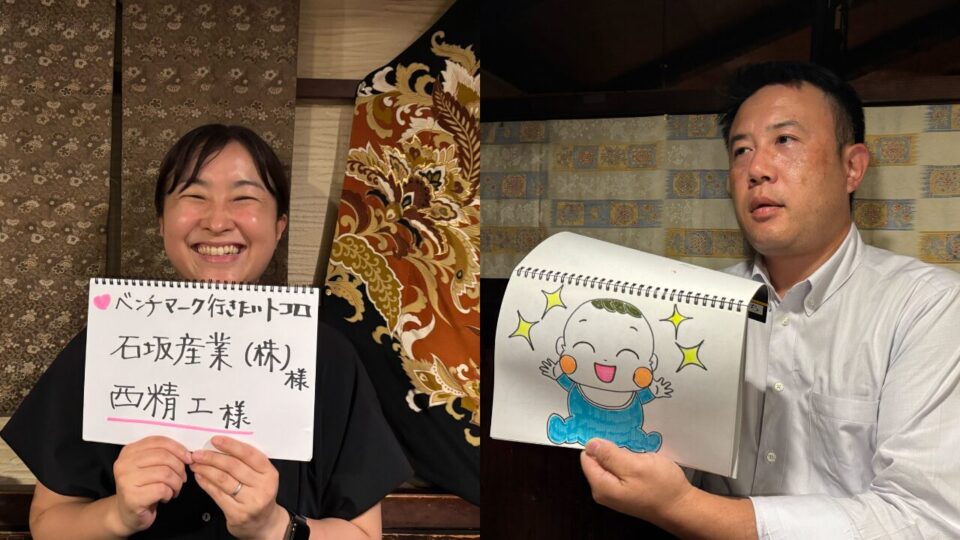 ベンチマーク行きたいトコロ
石坂産業(株)様
西精工様